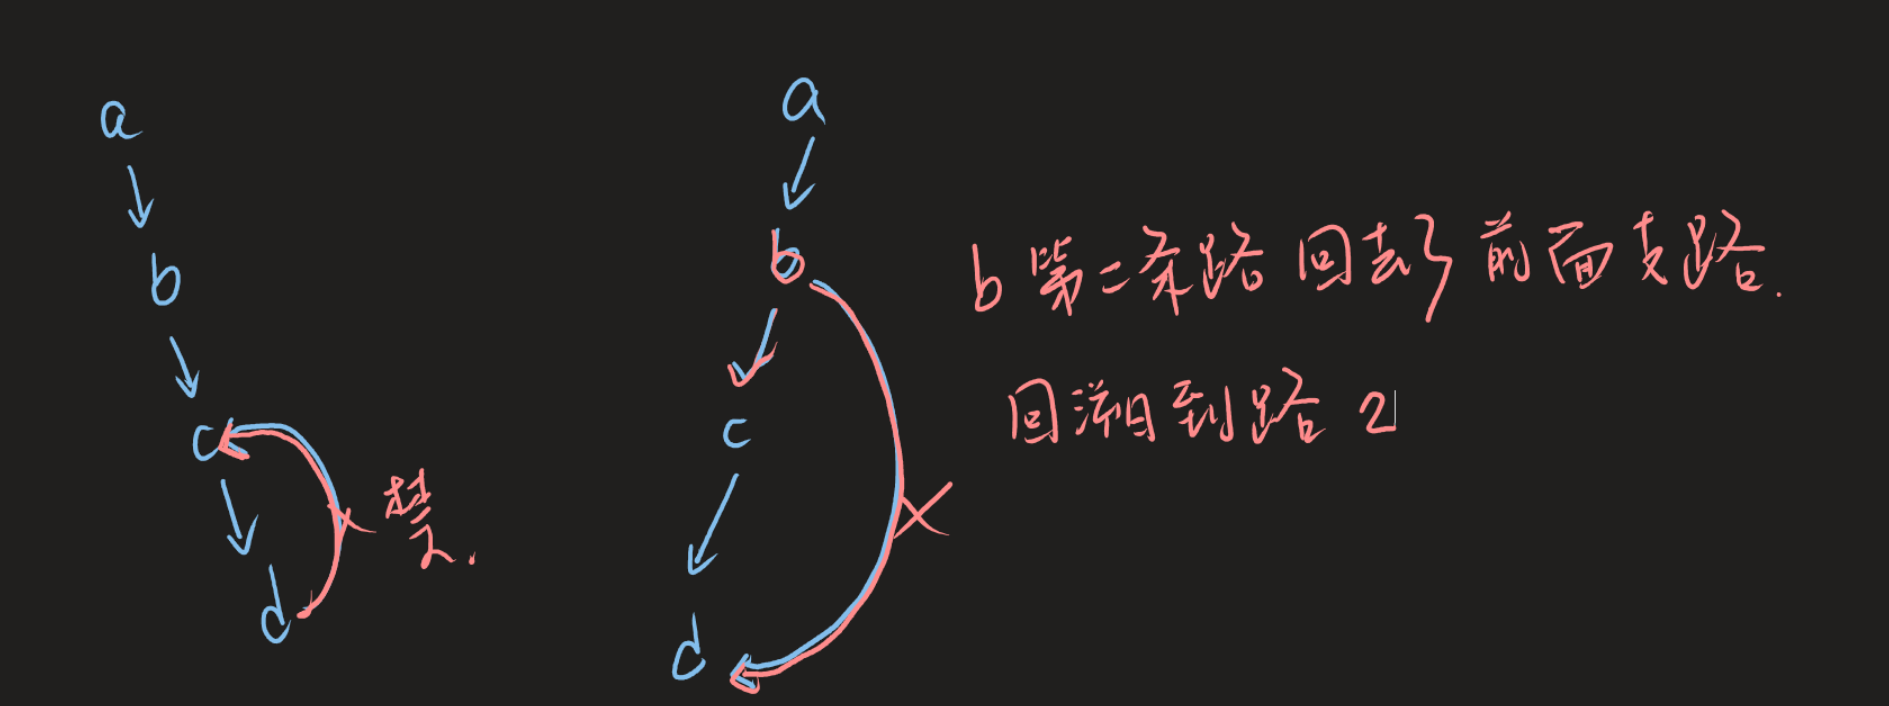 a
b
c
d
禁.
a
b
c
d
b 第二条路 回去了 前面支路.
回溯到路 2